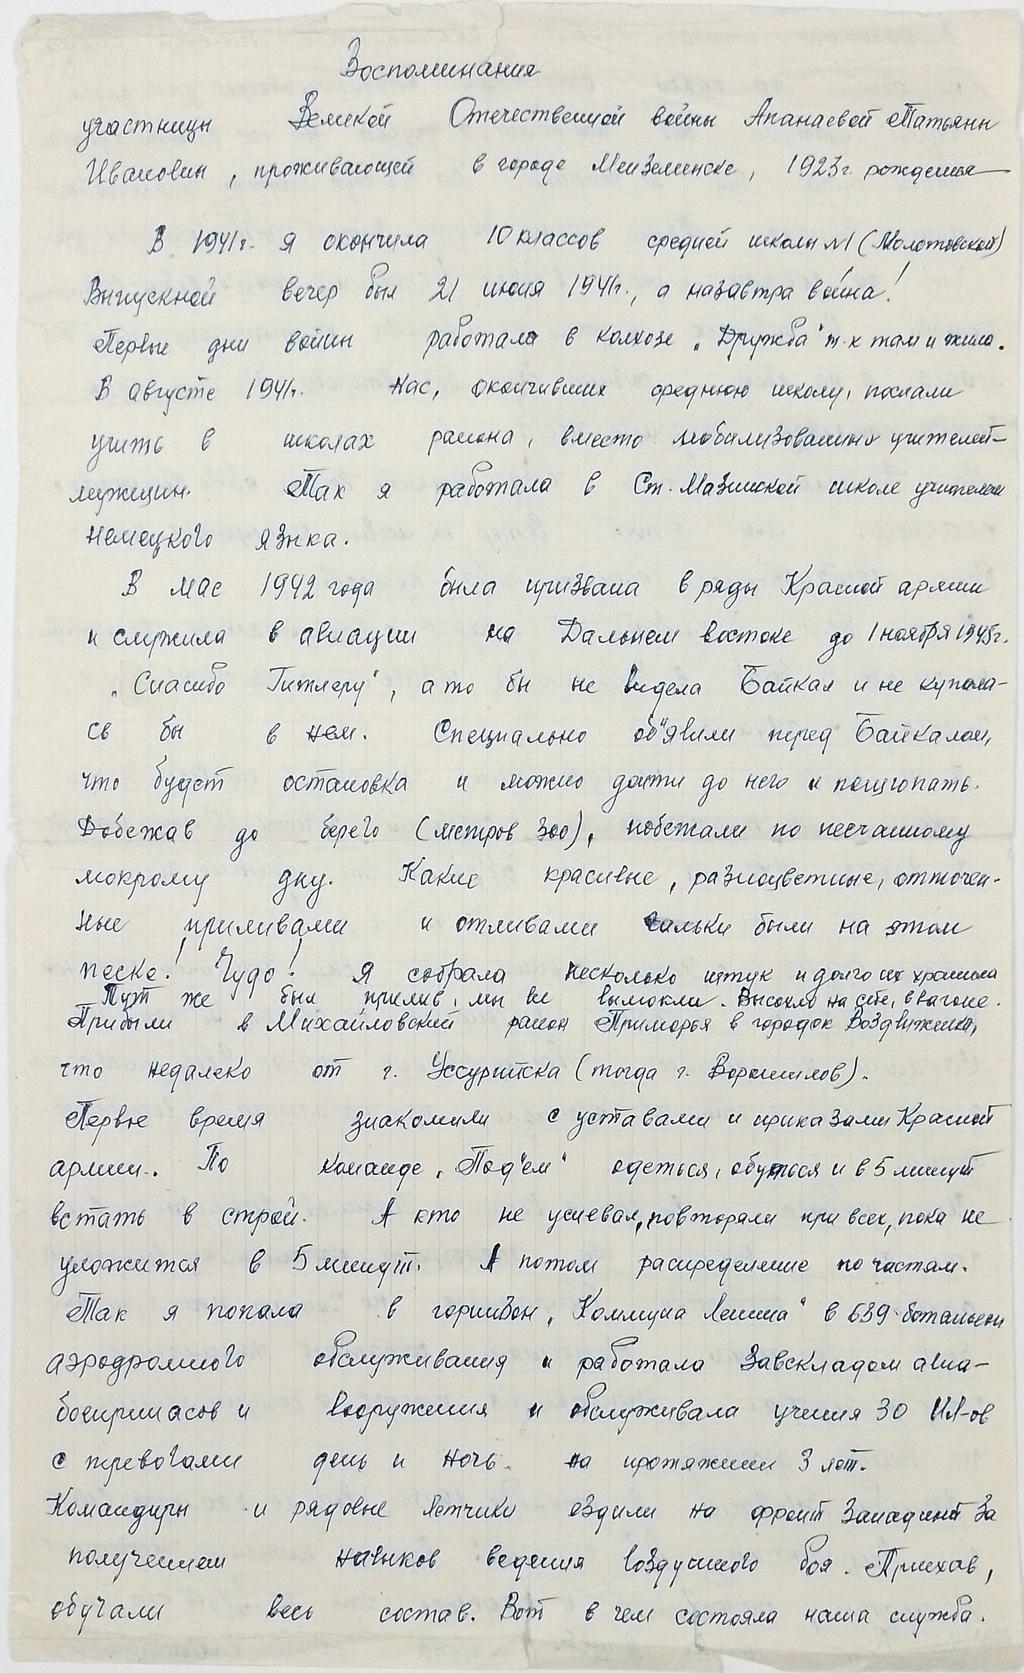 Воспоминания
участницы Великой Отечественной войны Апанаевой Татьяны
Ивановны, проживающей в городе Мензелинске, 1923г. рождения
В 1941г. я окончила 10 классов средней школы №1 (Молотовской)
Выпускной вечер был 21 июня 1941г., а назавтра война!
Первые дни войны работала в колхозе „Дружба" т.к там и жила.
В августе 1941г. Нас, окончивших среднюю школу, послали
учить в школах района, вместо мобилизованных учителей-
мужчин. Так я работала в Ст. Мазинской школе учителем
немецкого языка.
В мае 1942 года была призвана в ряды Красной армии
и служила в авиации на Дальнем востоке до 1 ноября 1945г.
„Спасибо Гитлеру", а то бы не видела Байкал и не купала-
сь бы в нем. Специально об"явили перед Байкалом,
что будет остановка и можно дойти до него и пощупать.
Добежав до берега (метров 300), побежали по песчанному
мокрому дну. Какие красивые, разноцветные, отточен-
ные приливами и отливами гальки были на этом
песке! Чудо! Я собрала несколько штук и долго их хранила
Тут же был прилив, мы все вымокли. Высохло на себе, в вагоне.
Прибыли в Михайловский район Приморья в городок Воздвиженка,
что недалеко от г. Уссурийска (тогда г. Ворошилов).
Первое время знакомили с уставами и приказами Красной
армии. По команде „Под"ем" одеться, обуться и в 5 минут
встать в строй. А кто не успевал, повторяли при всех, пока не
уложится в 5 минут. А потом распределение по частям.
Так я попала в гарнизон „Коммуна Ленина" в 639 батальон
аэродромного обслуживания и работала Завскладом авиа-
боеприпасов и вооружения и обслуживала учения 30 ИЛ-ов
с тревогами день и ночь на протяжении 3 лет.
Командиры и рядовые летчики ездили на фронт Западный За
получением навыков ведения воздушного боя. Приехав,
обучали весь состав. Вот в чем состояла наша служба.